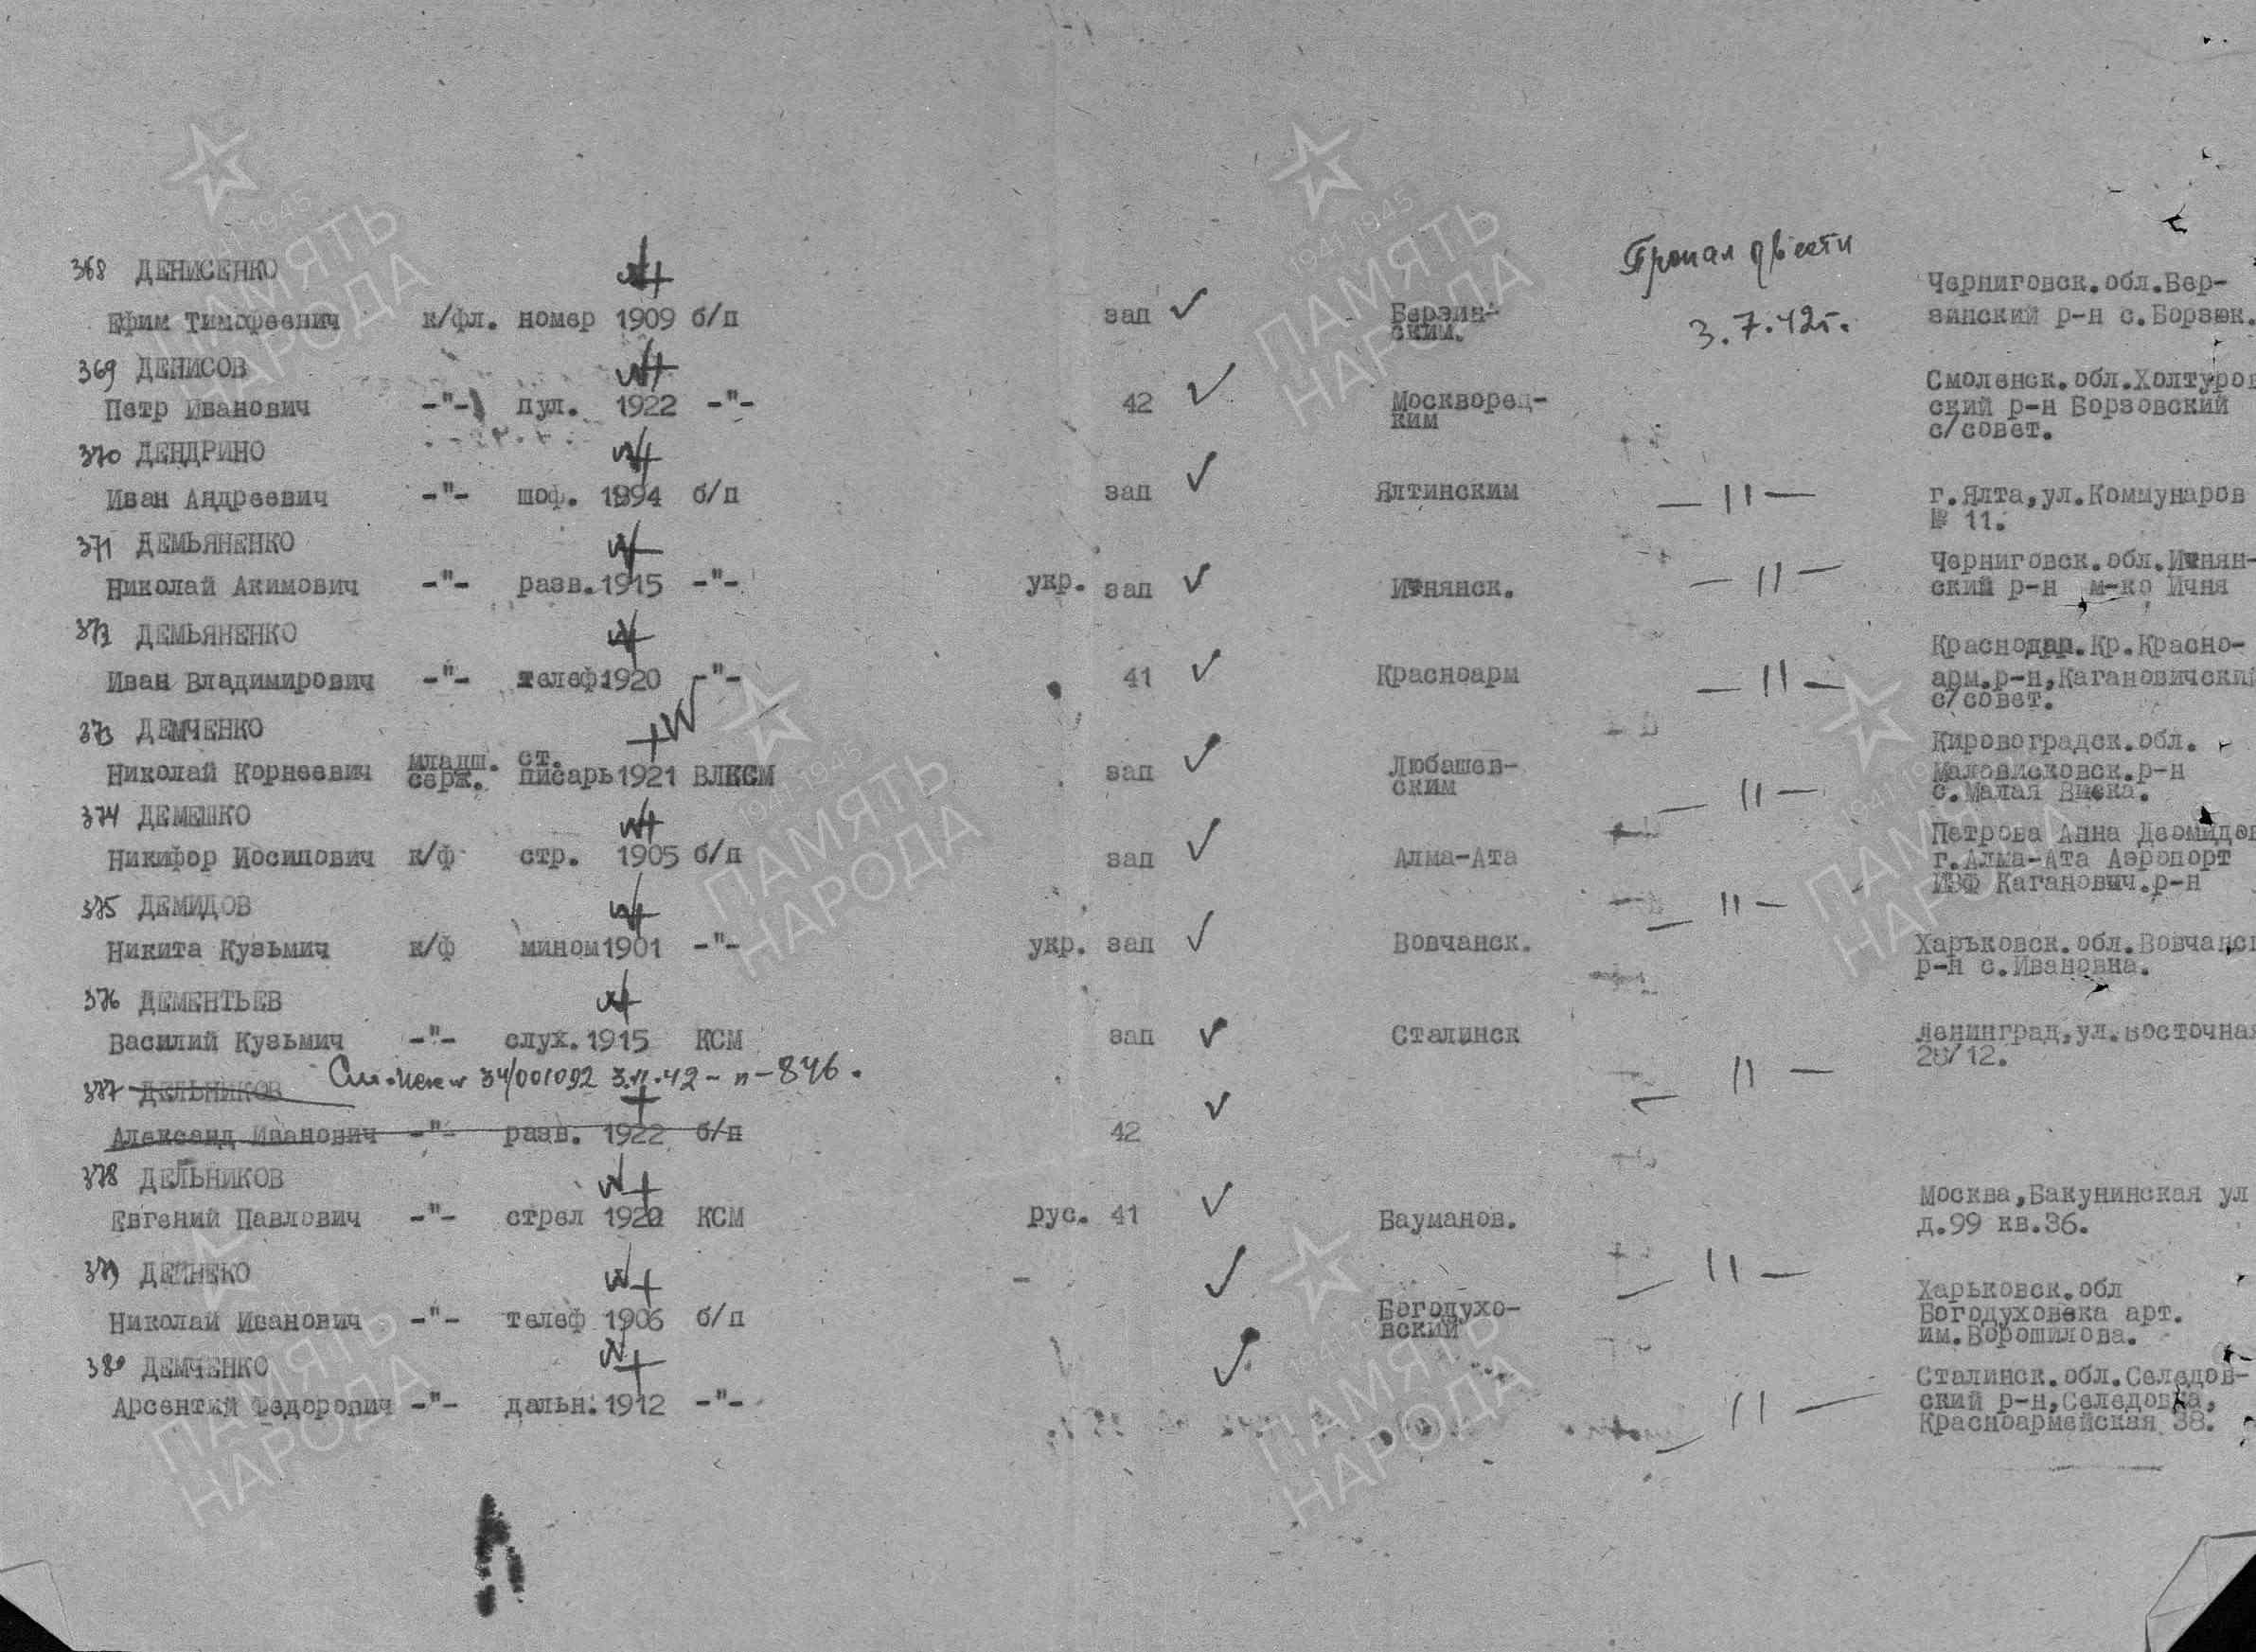 Пропал б/вести
368 ДЕНИСЕНКО Черниговск.обл.Бер-
Ефим Тимофеевич к/фл. номер 1909 б/п зап Берзин-ским. 3.7.42г. зинский р-н с.Борзюк.
369 ДЕНИСОВ Смоленск.обл.Холтуров
Петр Иванович -"- пул. 1922 -"- 42 Москворец-ким ский р-н Борзовский
с/совет.
370 ДЕНДРИНО
Иван Андреевич -"- шоф. 1894 б/п зап Ялтинским -"- г.Ялта,ул.Коммунаров
№ 11.
371 ДЕМЬЯНЕНКО Черниговск.обл.Ичнян-
Николай Акимович -"- разв.1915 -"- укр. зап Ичнянск. -"- ский р-н м-ко Ичня
372 ДЕМЬЯНЕНКО Краснодар.Кр.Красно-
Иван Владимирович -"- телеф.1920 -"- 41 Красноарм -"- арм.р-н,Кагановичский
с/совет.
373 ДЕМЧЕНКО Кировоградск.обл.
Николай Корнеевич младш. серж. ст. писарь 1921 ВЛКСМ зап Любашев-ским -"- Маловисковск.р-н
с.Малая Виска.
374 ДЕМЕШКО Петрова Анна Деомидов
Никифор Иосипович к/ф стр. 1905 б/п зап Алма-Ата -"- г.Алма-Ата Аэропорт
Каганович.р-н
375 ДЕМИДОВ
Никита Кузьмич к/ф мином 1901 -"- укр. зап Вовчанск. Харьковск.обл.Вовчанск
р-н с.Ивановка.
376 ДЕМЕНТЬЕВ
Василий Кузьмич -"- слух.1915 КСМ зап Сталинск -"- Ленинград,ул.Восточная
28/12.
377 ДЕЛЬНИКОВ 34/001092 3.VII.42 - п-846.
Александ Иванович -"- разв. 1922 б/п 42
378 ДЕЛЬНИКОВ Москва,Бакунинская ул
Евгений Павлович -"- стрел 1922 КСМ рус. 41 Бауманов. д.99 кв.36.
379 ДЕЙНЕКО -"- Харьковск.обл
Николай Иванович -"- телеф 1906 б/п Богодухо-вский Богодуховска арт.
им.Ворошилова.
380 ДЕМЧЕНКО Сталинск.обл.Селедов-
Арсентий Федорович -"- дальн.1912 -"- -"- ский р-н,Селедовка,
Красноармейская 38.
1941-1945
ПАМЯТЬ
НАРОДА